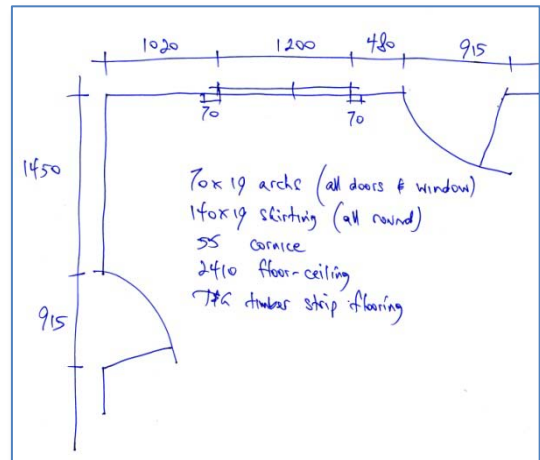 1020 1200 480 915
70 70
1450
70x19 archs (all doors & window)
140x19 skirting (all round)
55 cornice
2410 floor-ceiling
T&G timber strip flooring
915